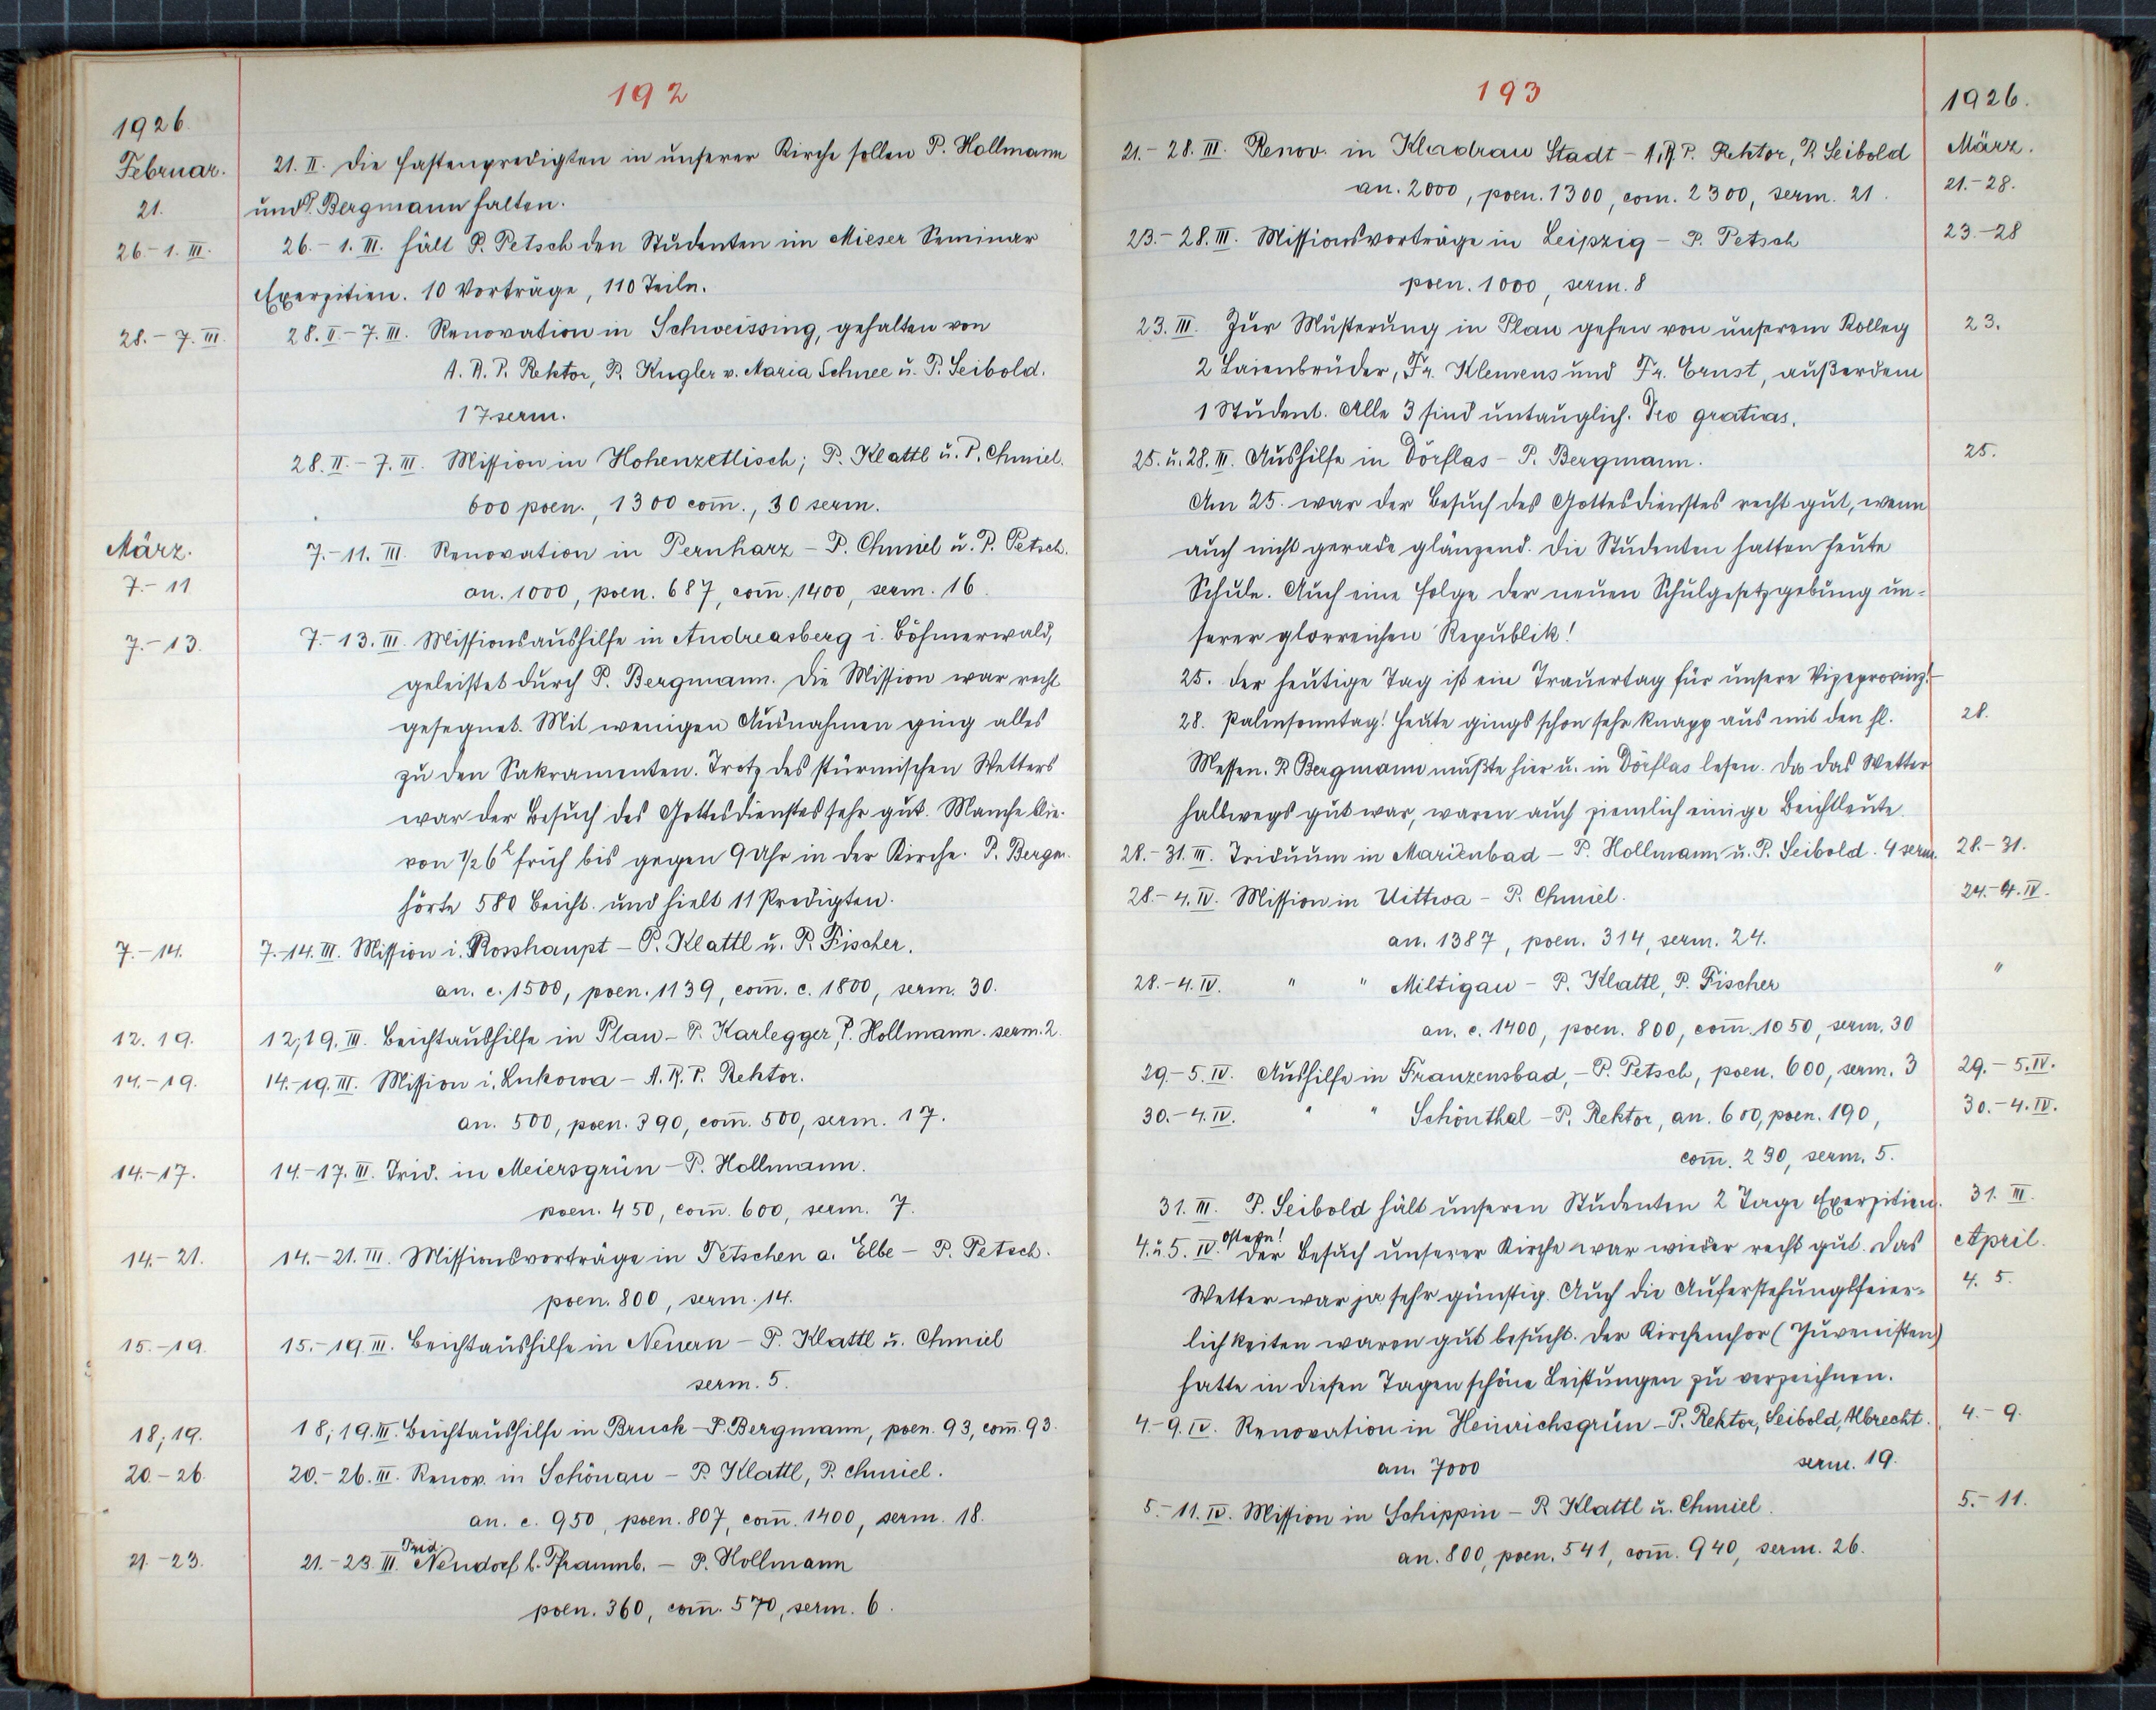 192
1926.
Februar. 21. II. Die Fastenpredigten in unserer Kirche sollen P. Hollmann
21. und P. Bergmann halten.
26.-1. III. 26.-1. III. hält P. Petsch den Studenten im Mieser Seminar
Exerzitien. 10 Vorträge, 110 Teiln.
28.-7. III. 28. II-7. III. Renovation in Schweissing, gehalten von
A. R. P. Rektor, P. Kugler v. Maria Schnee u. P. Seibold.
17 serm.
28. II.-7. III. Mission in Hohenzetlisch; P. Klattl u. P. Chmiel.
600 poen., 1300 com̅., 30 serm.
März. 7.-11. III. Renovation in Pernharz - P. Chmiel u. P. Petsch.
7.-11 an. 1000, poen. 687, com̅. 1400, serm. 16.
7.-13. 7.-13. III. Missionsaushilfe in Andreasberg i. Böhmerwald,
geleistet durch P. Bergmann. Die Mission war recht
gesegnet. Mit wenigen Ausnahmen ging alles
zu den Sakramenten. Trotz des stürmischen Wetters
war der Besuch des Gottesdienstes sehr gut. Manche blie-
von 1/2 6 h früh bis gegen 9 Uhr in der Kirche. P. Bergm.
hörte 580 Beicht. und hielt 11 Predigten.
7.-14. 7.-14. III. Mission i. Rosshaupt - P. Klattl u. P. Fischer.
an. c. 1500, poen. 1139, com̅. c. 1800, serm. 30.
12. 19. 12; 19. III. Beichtaushilfe in Plan - P. Karlegger, P. Hollmann. serm. 2.
14.-19. 14.-19. III. Mission i. Lukowa - A. R. P. Rektor.
an. 500, poen. 390, com̅. 500, serm. 17.
14.-17. 14.-17. III. Trid. in Meiersgrün - P. Hollmann.
poen. 450, com̅. 600, serm. 7.
14.-21. 14.-21. III. Missionsvorträge in Tetschen a. Elbe - P. Petsch.
poen. 800, serm. 14.
15.-19. 15.-19. III. Beichtaushilfe in Neuern - P. Klattl u. Chmiel
serm. 5.
18; 19. 18; 19. III. Beichtaushilfe in Bruck - P. Bergmann, poen. 93, com̅. 93.
20.-26. 20.-26. III. Renov. in Schönau - P. Klattl, P. Chmiel.
an. c. 950, poen. 807, com̅. 1400, serm. 18.
21.-23. 21.-23. III. Trid. Neudorf b. Pfraumb. - P. Hollmann
poen. 360, com̅. 570, serm. 6.
193
1926.
21.-28. III. Renov. in Kladrau Stadt - A. R. P. Rektor, P. Seibold März.
an. 2000, poen. 1300, com. 2300, serm. 21. 21.-28.
23.-28. III. Missionsvorträge in Leipzig - P. Petsch 23.-28
poen. 1000, serm. 8
23. III. Zur Musterung in Plan gehen von unserem Kolleg 23.
2 Laienbrüder, Fr. Klemens und Fr. Ernst, außerdem
1 Student. Alle 3 sind untauglich. Deo gratias.
25. u. 28. III. Aushilfe in Dörflas - P. Bergmann. 25.
Am 25. war der Besuch des Gottesdienstes recht gut, wenn
auch nicht gerade glänzend. Die Studenten hatten heute
Schule. Auch eine Folge der neuen Schulgesetzgebung un-
serer glorreichen Republik!
25. Der heutige Tag ist ein Trauertag für unsere Vizeprovinz! -
28. Palmsonntag! Heute gings schon sehr knapp aus mit den hl. 28.
Messen. P. Bergmann mußte hier u. in Dörflas lesen. Da das Wetter
halbwegs gut war, waren auch ziemlich einige Beichtleute.
28.-31. III. Triduum in Marienbad - P. Hollmann u. P. Seibold. 4 serm. 28.-31.
28.-4. IV. Mission in Uittwa - P. Chmiel. 24.-4. IV.
an. 1387, poen. 314, serm. 24.
28.-4. IV. " " Miltigau - P. Klattl, P. Fischer "
an. c. 1400, poen. 800, com̅. 1050, serm. 30
29.-5. IV. Aushilfe in Franzensbad, - P. Petsch, poen. 600, serm. 3 29.-5. IV.
30.-4. IV. " " Schönthal - P. Rektor, an. 600, poen. 190, 30.-4. IV.
com̅. 230, serm. 5.
31. III. P. Seibold hält unseren Studenten 2 Tage Exerzitien. 31. III.
4. u. 5. IV. Ostern! Der Besuch unserer Kirche war wieder recht gut. Das April.
Wetter war ja sehr günstig. Auch die Auferstehungsfeier- 4. 5.
lichkeiten waren gut besucht. Der Kirchenchor (Juvenisten)
hatte in diesen Tagen schöne Leistungen zu verzeichnen.
4.-9. IV. Renovation in Heinrichsgrün - P. Rektor, Seibold, Albrecht. 4.-9.
an. 7000 serm. 19.
5.-11. IV. Mission in Schippin - P. Klattl u. Chmiel. 5.-11.
an. 800, poen. 541, com̅. 940, serm. 26.